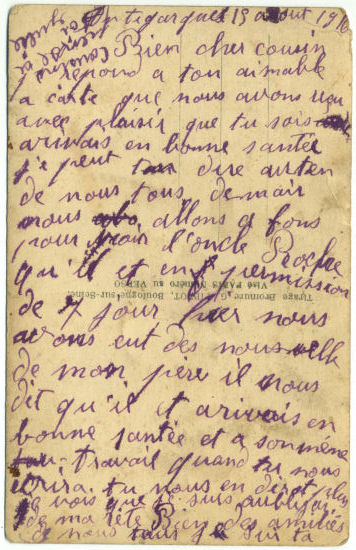 15 aout 1916
Bien cher cousin
repond a ton aimable
a carte que nous avons reçu
avec plaisir que tu sois
arrivais en bonne santée
je peut dire auten
de nous tous demain
nous allons a fons
pour voir l'oncle Roche
qu'il et en permission
de 7 jour hier nous
avons eut des nouvelle
de mon père il nous
dit qu'il et arivais en
bonne santée et a son même
travail quand tu nous
ecrira tu nous en dira plus
je vois que je suis oublijai
de ma tête Bien des amitiés
de nous tous
Tirage Bromure, G. Boulogne-sur-Seine.
Visé PARIS Numéro au VERSO